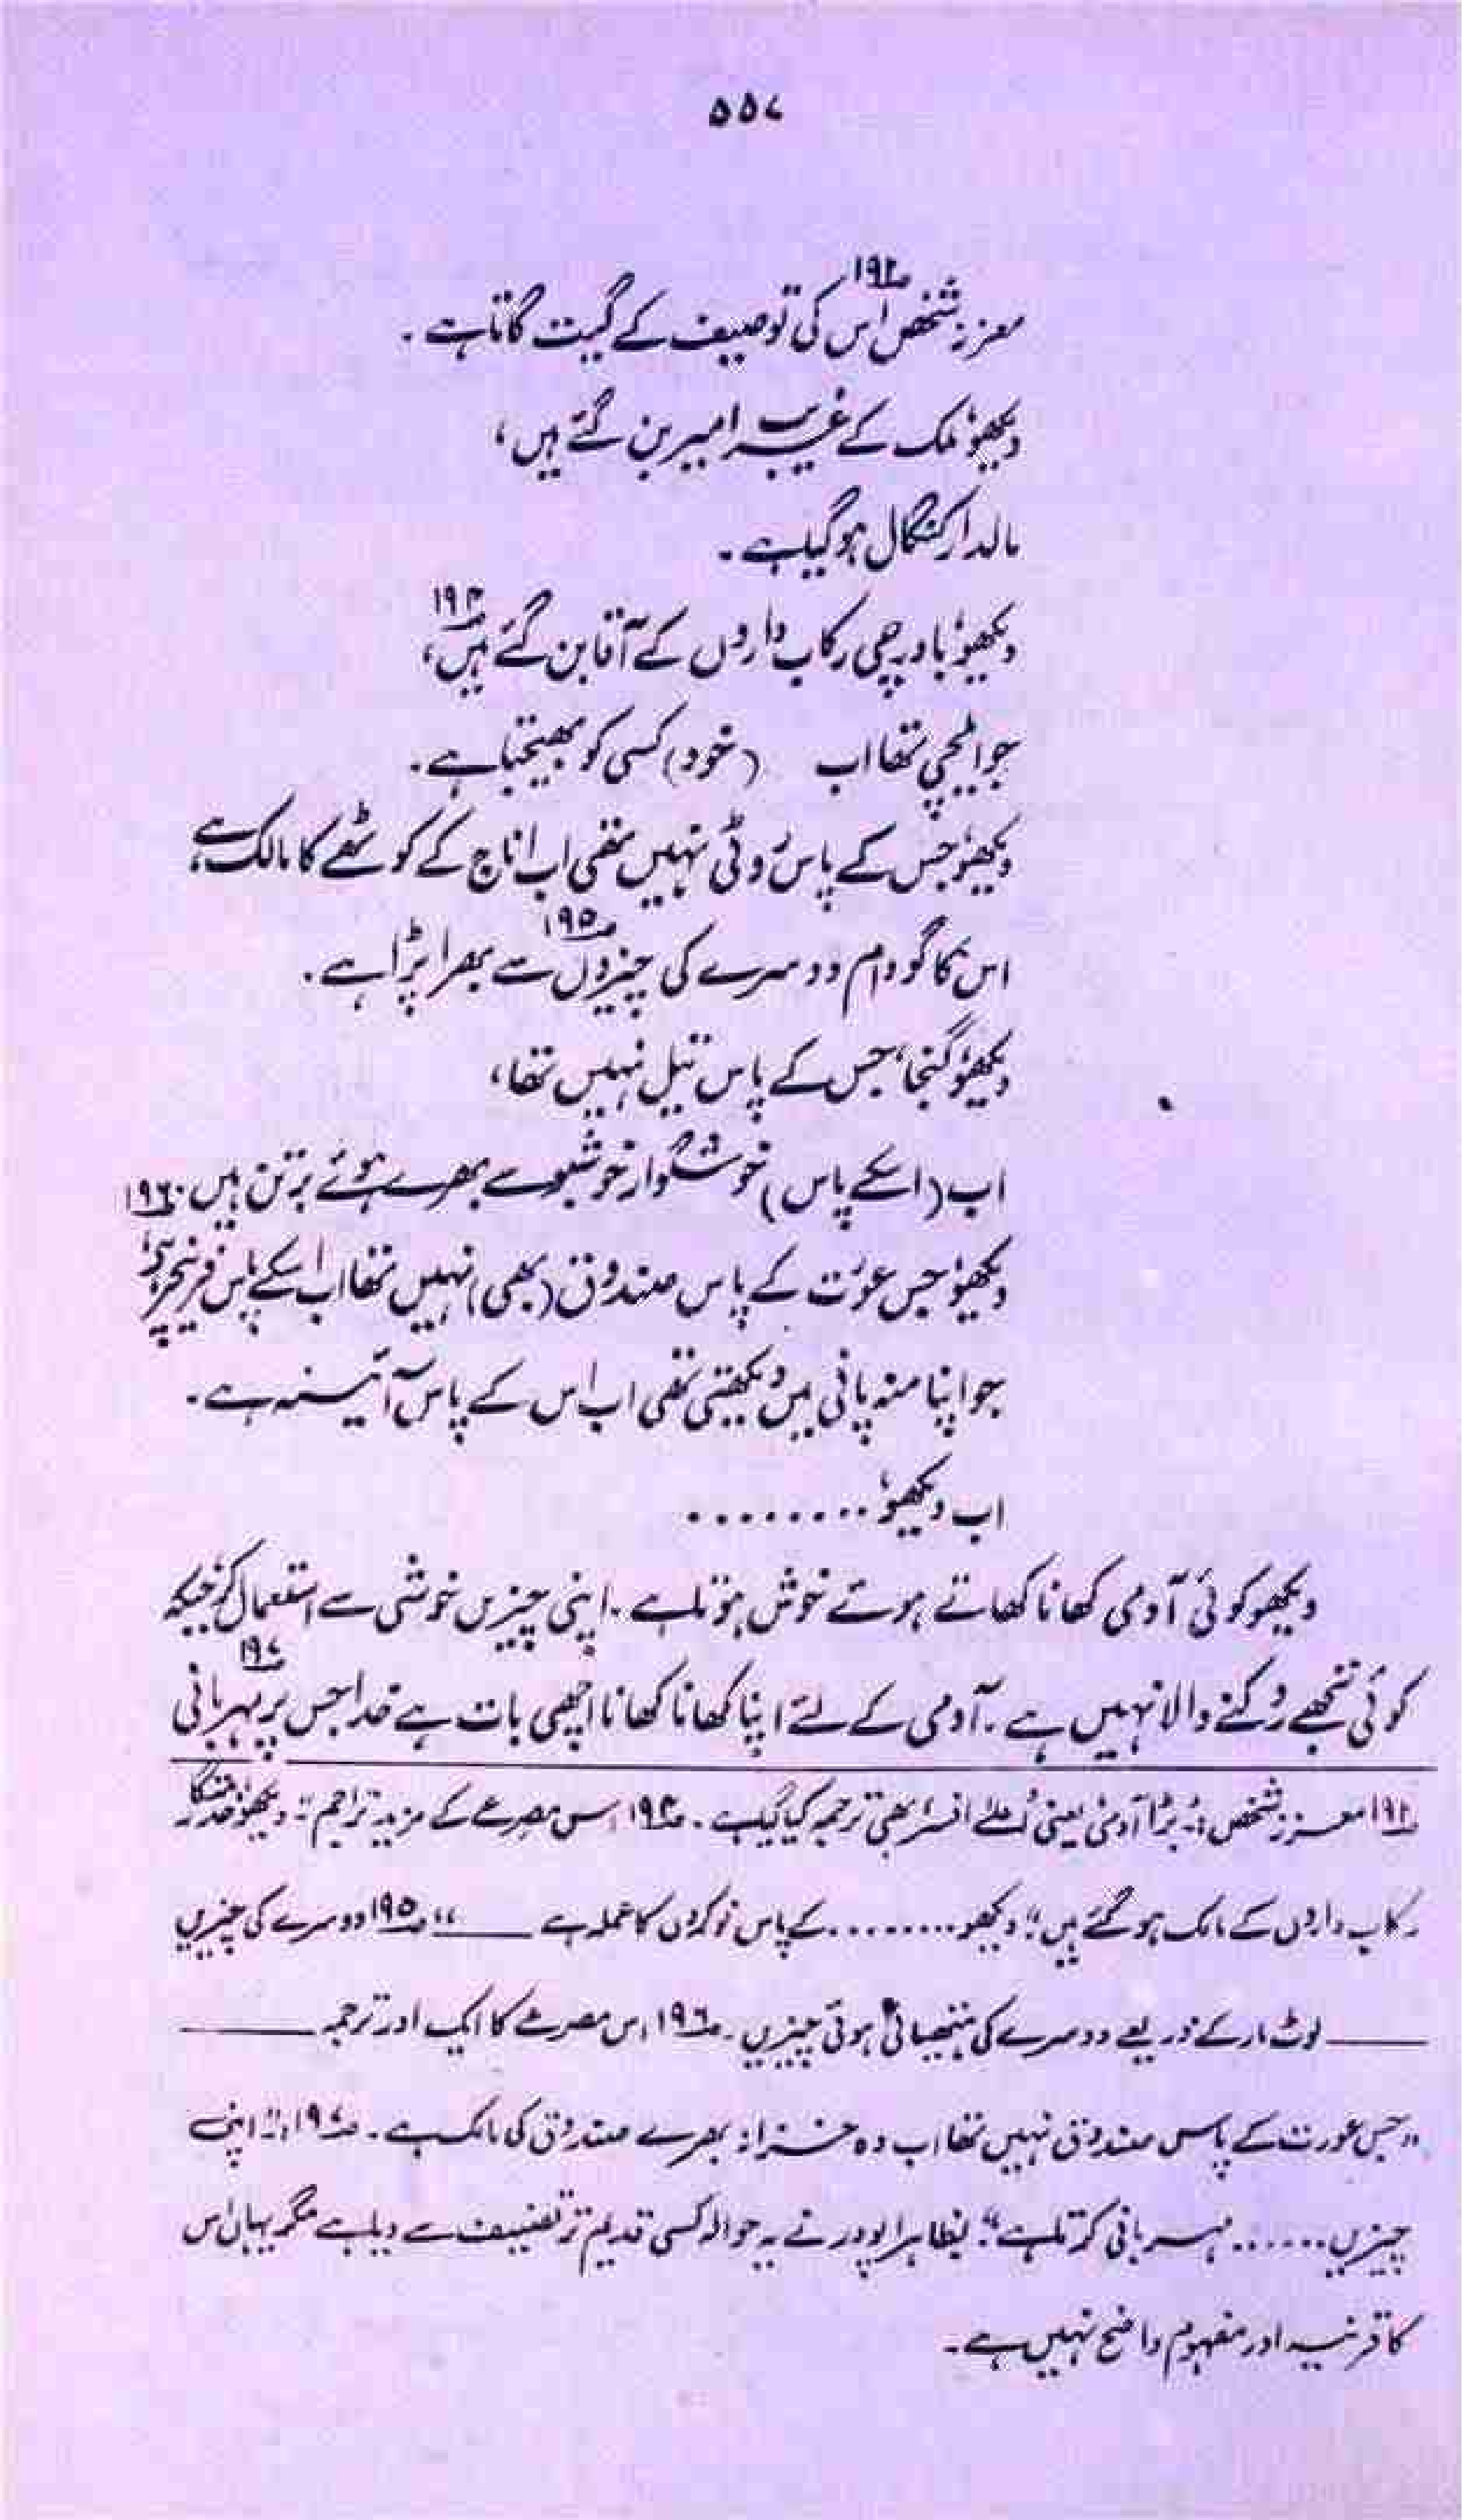 ۵۵۷
معزز شخص اس کی توصیف کے گیت گاتا ہے۔ ۱۹۳؎
دیکھو، ملک کے غریب امیر بن گئے ہیں،
مالدار کنگال ہو گیا ہے۔
دیکھو، باورچی رکاب داروں کے آقا بن گئے ہیں، ۱۹۴؎
جو ایلچی تھا اب (خود) کسی کو بھیجتا ہے۔
دیکھو، جس کے پاس روٹی نہیں تھی اب اناج کے کوٹھے کا مالک ہے،
اس کا گودام دوسرے کی چیزوں ۱۹۵؎ سے بھرا پڑا ہے۔
دیکھو، گنجا، جس کے پاس تیل نہیں تھا،
اب (اسکے پاس) خوشگوار خوشبو سے بھرے ہوئے برتن ہیں۔ ۱۹۶؎
دیکھو، جس عورت کے پاس صندوق (بھی) نہیں تھا اب اسکے پاس فرنیچر ہے،
جو اپنا منہ پانی میں دیکھتی تھی اب اس کے پاس آئینہ ہے۔
اب دیکھو، ........
دیکھو کوئی آدمی کھانا کھاتے ہوئے خوش ہوتا ہے۔ اپنی چیزیں خوشی سے استعمال کر جبکہ
کوئی تجھے روکنے والا نہیں ہے۔ آدمی کے لئے اپنا کھانا کھانا اچھی بات ہے خدا جس پر مہربانی ۱۹۷؎
۱۹۳؎ معزز شخص:۔ بڑا آدمی یعنی اعلیٰ افسر بھی ترجمہ کیا گیا ہے۔ ۱۹۴؎ اس مصرعے کے مزید تراجم:۔ دیکھو، خدمتگار
رکاب داروں کے مالک ہو گئے ہیں" دیکھو ........ کے پاس نوکروں کا عملہ ہے ____" ۱۹۵؎ دوسرے کی چیزیں
____ لوٹ مار کے ذریعے دوسرے کی ہتھیائی ہوئی چیزیں۔ ۱۹۶؎ اس مصرعے کا ایک اور ترجمہ ____
"جس عورت کے پاس صندوق نہیں تھا اب وہ خزانہ بھرے صندوق کی مالک ہے۔ ۱۹۷؎:۔ "اپنی
چیزیں ...... مہربانی کرتا ہے"۔ بظاہر اپوور نے یہ حوالہ کسی قدیم تر تصنیف سے دیا ہے مگر یہاں اس
کا قرینہ اور مفہوم واضح نہیں ہے۔